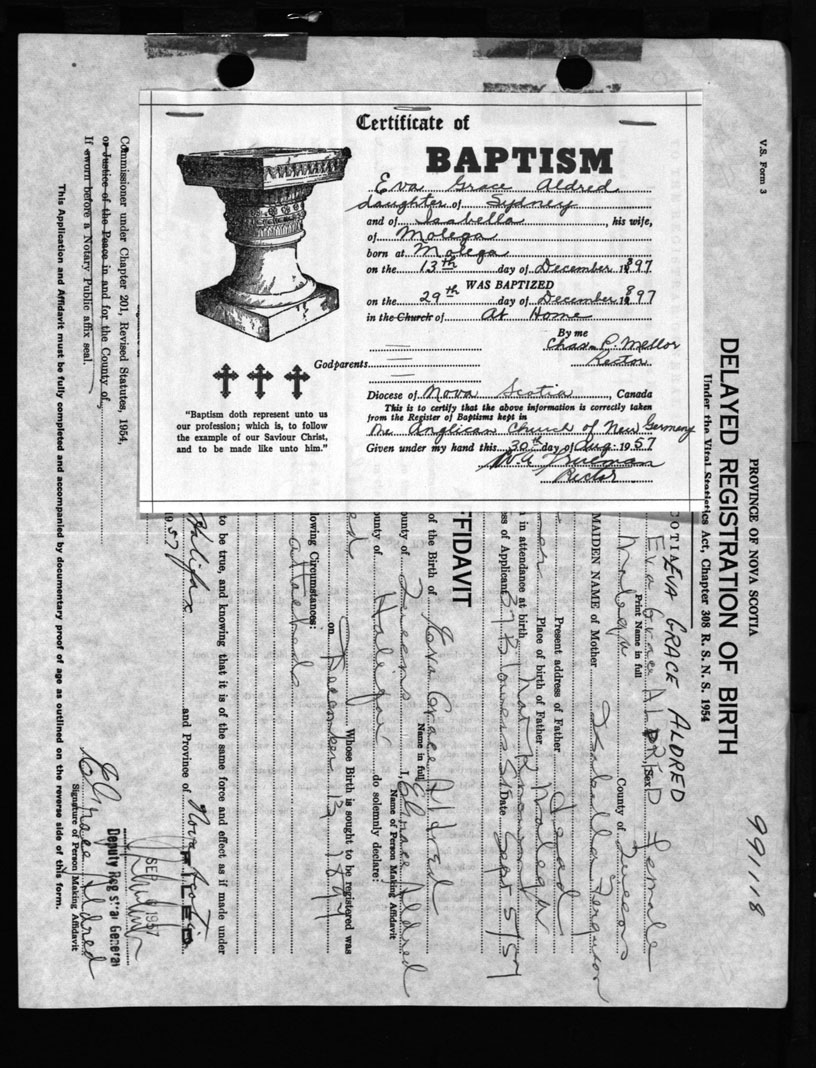 Certificate of
BAPTISM
Eva Grace Aldred
daughter of Sydney
and of Isabella, his wife,
of Molega
born at Molega
on the 13th day of December 1897
WAS BAPTIZED
on the 29th day of December 1897
in the Church of At Home
By me
Chas. P. Mellor
Rector
Godparents
Diocese of Nova Scotia, Canada
This is to certify that the above information is correctly taken
from the Register of Baptisms kept in
The Anglican Church of New Germany
Given under my hand this 30th day of Aug. 1957
Rector
"Baptism doth represent unto us
our profession; which is, to follow
the example of our Saviour Christ,
and to be made like unto him."
V.S. Form 3
991118
PROVINCE OF NOVA SCOTIA
DELAYED REGISTRATION OF BIRTH
Under the Vital Statistics Act, Chapter 308 R. S. N. S. 1954
EVA GRACE ALDRED
Eva Grace ALDRED Sex Female
Print Name in full
Molega County of Queens
MAIDEN NAME of Mother Isabella Ferguson
Present address of Father Dead
Place of birth of Father Molega
in attendance at birth Not Known
of Applicant 37 Blowers St Date Sept 5/57
AFFIDAVIT
of the Birth of Eva Grace Aldred
Name in full
County of Queens I, E Grace Aldred
Name of Person Making Affidavit
County of Halifax do solemnly declare:
Whose Birth is sought to be registered was
on December 13 1897
lowing Circumstances:
attached
to be true, and knowing that it is of the same force and effect as if made under
Halifax and Province of Nova Scotia
1957
FILED
SEP 1957
Deputy Registrar General
E Grace Aldred
Signature of Person Making Affidavit
Commissioner under Chapter 201, Revised Statutes, 1954,
or Justice of the Peace in and for the County of
If sworn before a Notary Public affix seal.
This Application and Affidavit must be fully completed and accompanied by documentary proof of age as outlined on the reverse side of this form.